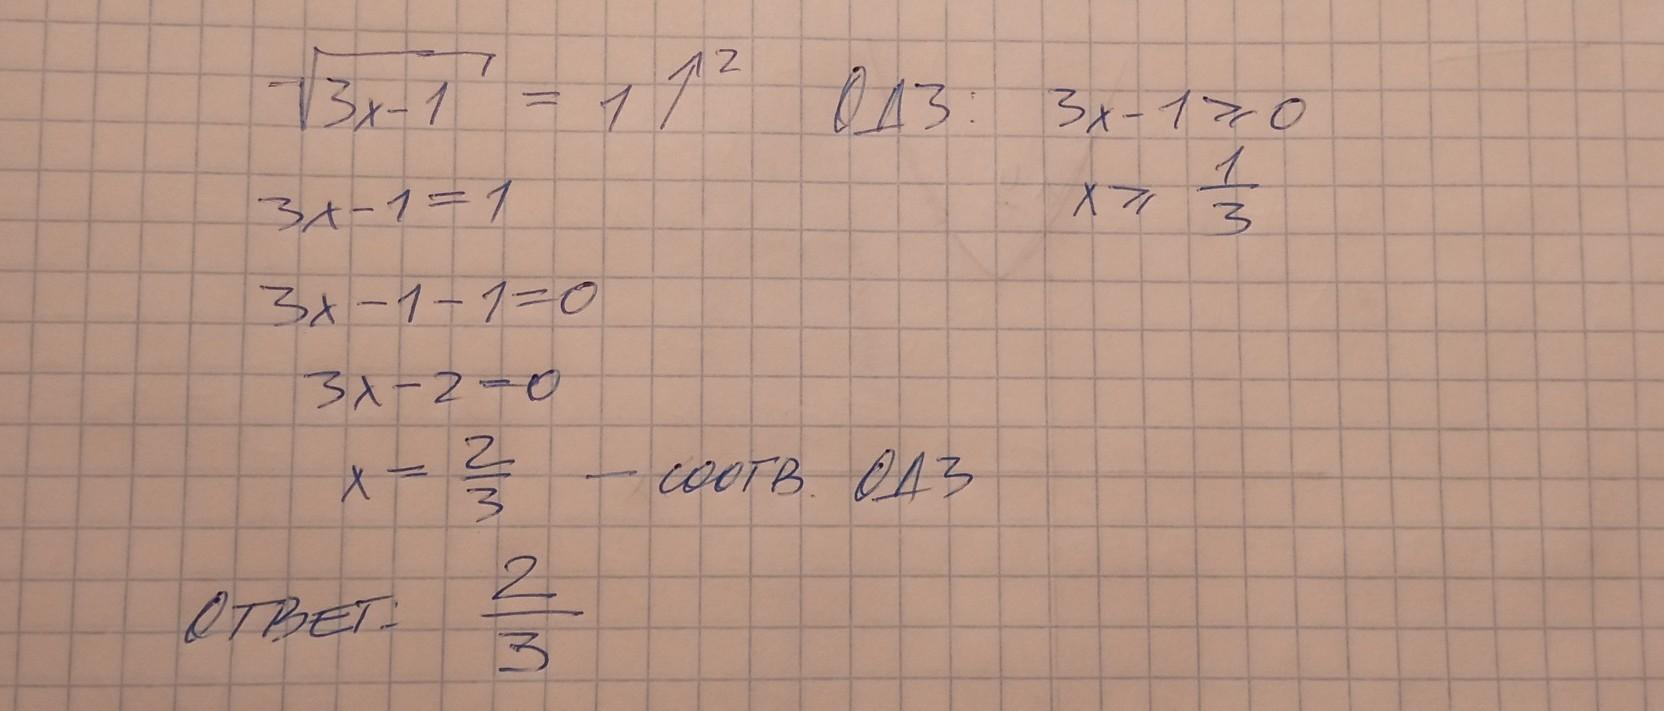 √(3x-1) = 1 ↑² ОДЗ: 3x-1⩾0
3x-1=1 x⩾ 1/3
3x-1-1=0
3x-2=0
x = 2/3 - соотв. ОДЗ
ОТВЕТ: 2/3